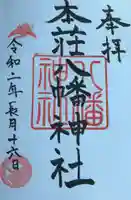 奉拝
本荘八幡神社
八幡神社
令和二年長月十六日